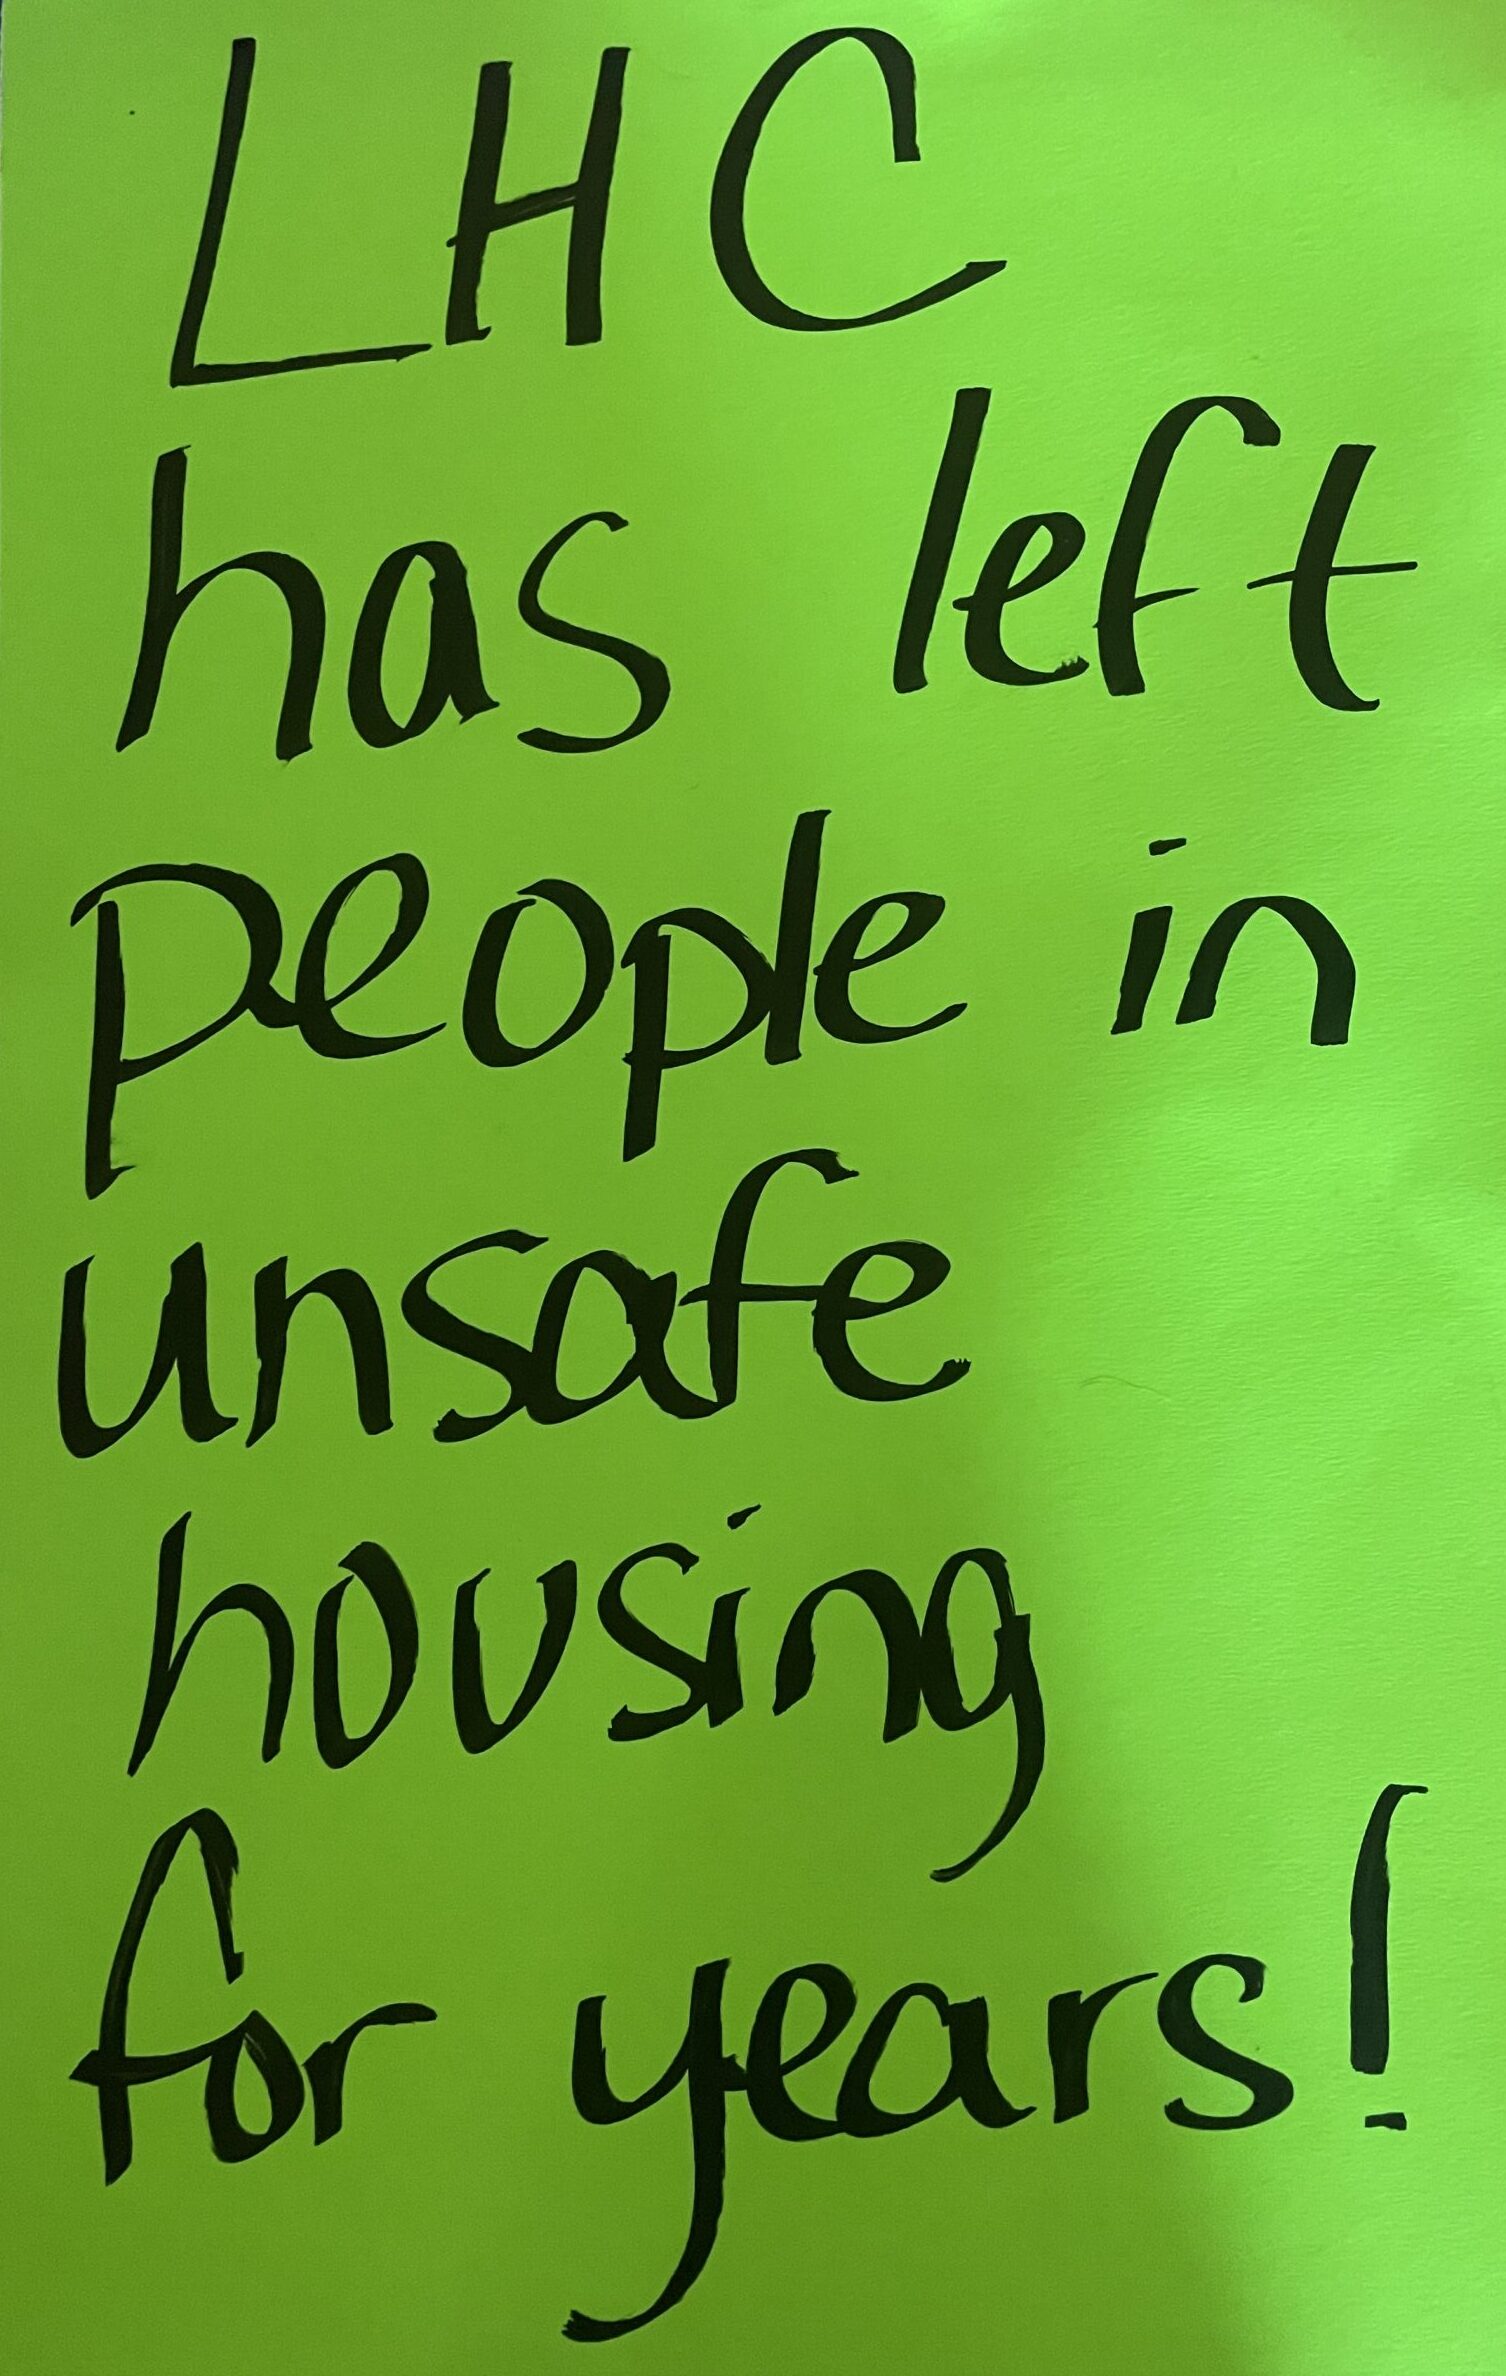 LHC
has left
people in
unsafe
housing
for years!